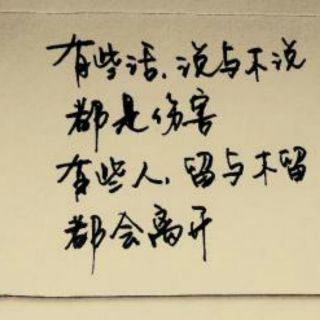 有些话，说与不说
都是伤害
有些人，留与不留
都会离开